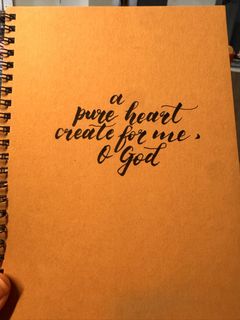 a
pure heart
create for me,
O God